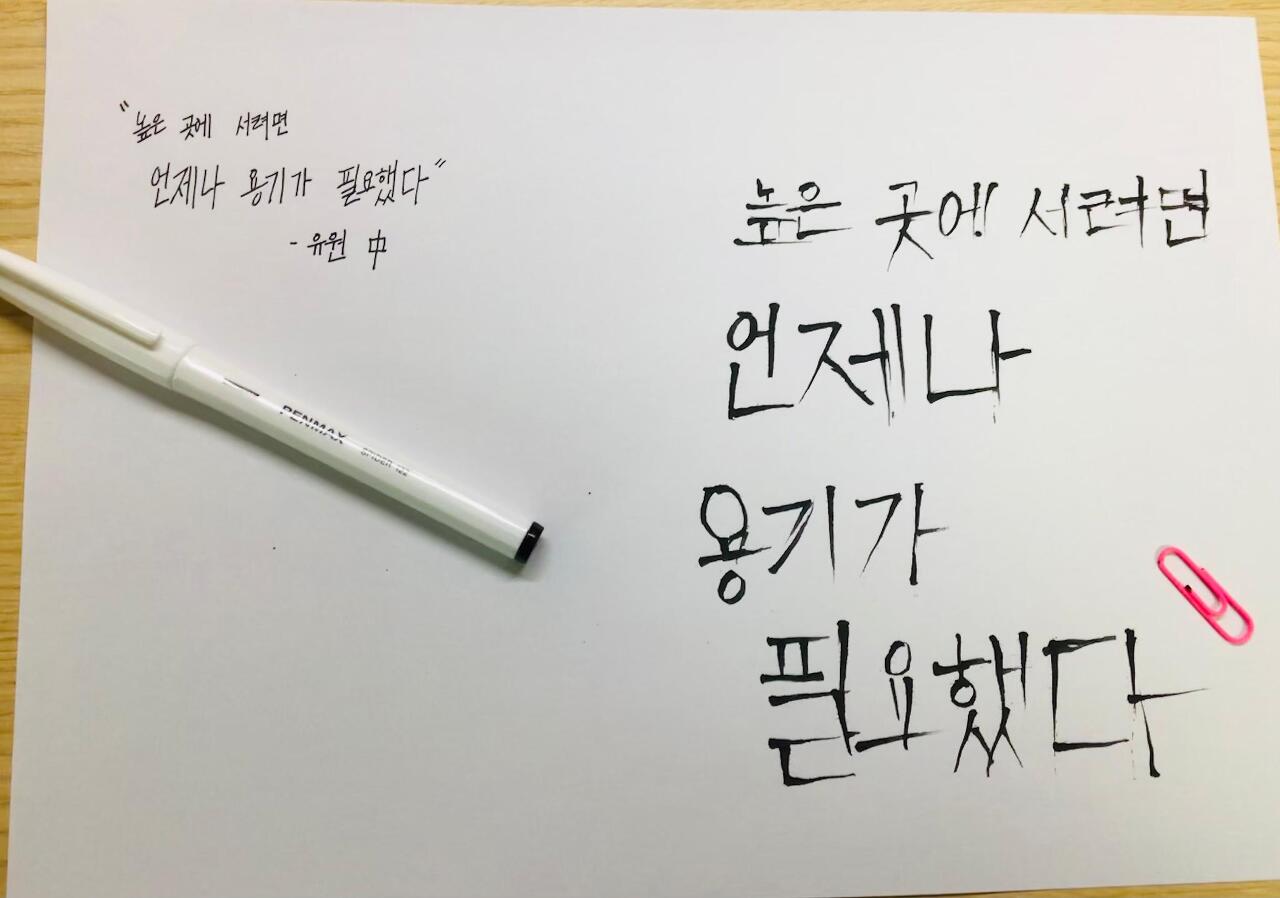 "높은 곳에 서려면
언제나 용기가 필요했다"
- 유원 中
PENMAX SPIDER 122
높은 곳에 서려면
언제나
용기가
필요했다